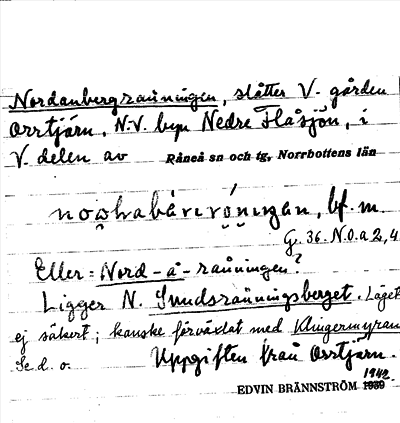 Nordanbergraningen, slåtter V. gården
Orrtjärn, N.V. byn Nedre Flåsjön, i
V. delen av Råneå sn och tg, Norrbottens län
bf. m.
G. 36. N.O. a 2, 4
Eller: Nord-å-raningen?
Ligger N. Smedsraningsberget. Läget
ej säkert; kanske förväxlat med Klingermyran
Se d. o. Uppgiften från Orrtjärn.
1942
EDVIN BRÄNNSTRÖM 1939